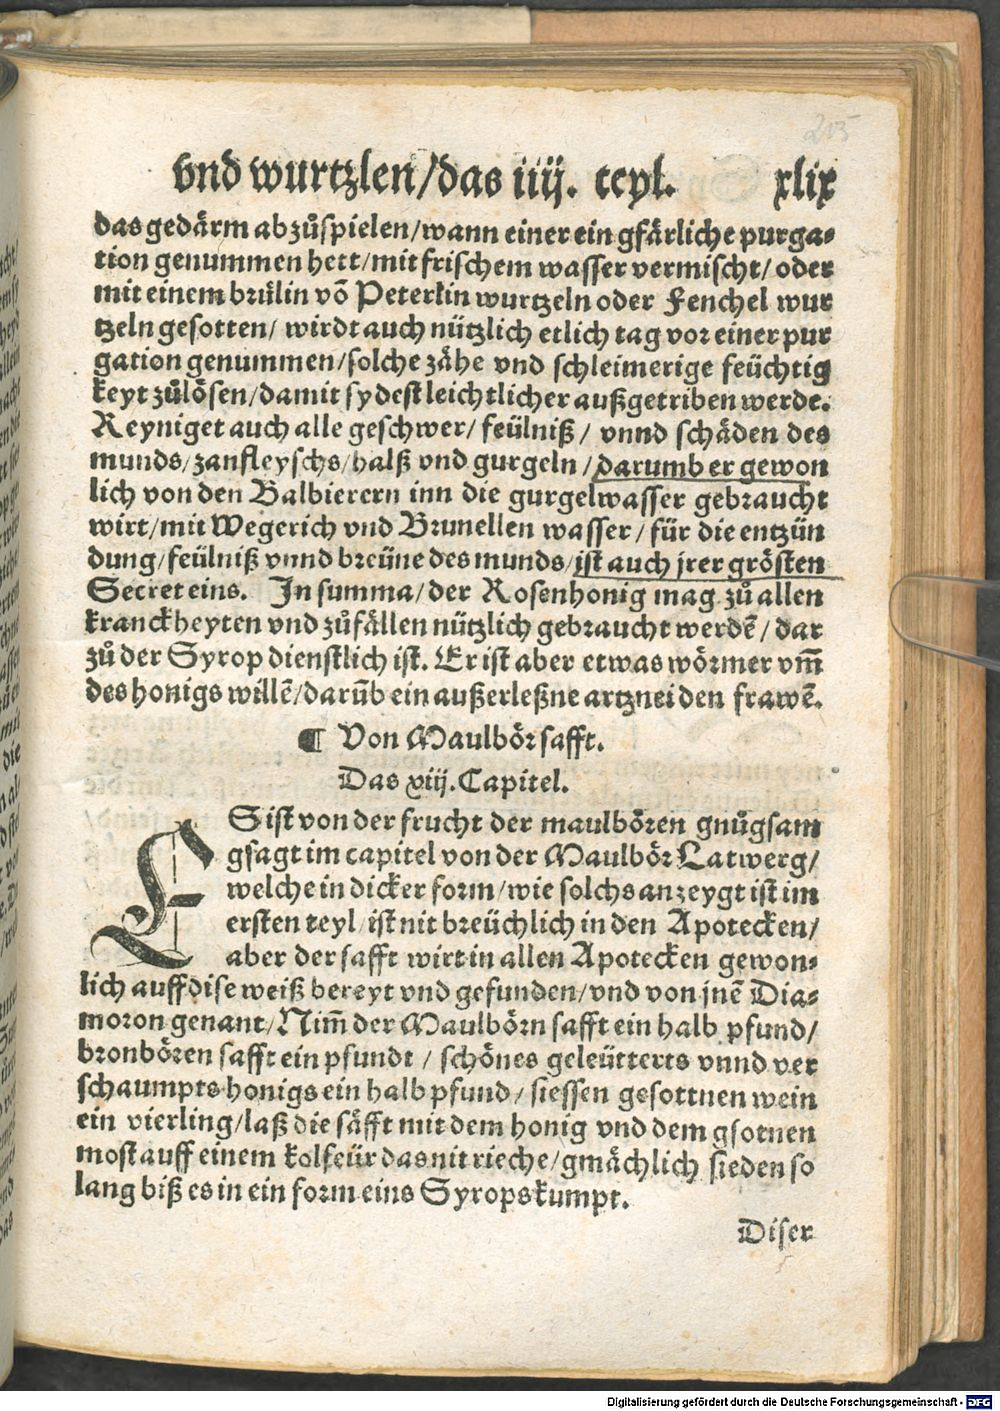 205
vnd wurtzlen/das iiij. teyl. xlix
das gedärm abzůspielen/wann einer ein gfärliche purga⸗
tion genummen hett/mit frischem wasser vermischt/oder
mit einem brülin võ Peterlin wurtzeln oder Fenchel wur
tzeln gesotten/ wirdt auch nützlich etlich tag vor einer pur
gation genummen/solche zåhe vnd schleimerige feüchtig
keyt zůlösen/damit sy dest leichtlicher außgetriben werde.
Reyniget auch alle geschwer/ feülniß/ vnnd schäden des
munds/zanfleyschs/halß vnd gurgeln/darumb er gewon
lich von den Balbierern inn die gurgelwasser gebraucht
wirt/mit Wegerich vnd Brunellen wasser/für die entzün
dung/feülniß vnnd breüne des munds/ist auch jrer grösten
Secret eins. In summa/der Rosenhonig mag zů allen
kranckheyten vnd zůfällen nützlich gebraucht werdẽ/dar
zů der Syrop dienstlich ist. Er ist aber etwas wörmer vm̃
des honigs willẽ/darũb ein außerleßne artznei den frawẽ.
¶ Von Maulbör safft.
Das xiij. Capitel.
ES ist von der frucht der maulbören gnůgsam
gsagt im capitel von der Maulbör Latwerg/
welche in dicker form/wie solchs anzeygt ist im
ersten teyl/ist nit breüchlich in den Apotecken/
aber der safft wirt in allen Apotecken gewon⸗
lich auff dise weiß bereyt vnd gefunden/vnd von jnẽ Dia⸗
moron genant/Nim̃ der Maulbörn safft ein halb pfund/
bronbören safft ein pfundt/ schönes geleütterts vnnd ver
schaumpts honigs ein halb pfund/siessen gesottnen wein
ein vierling/laß die säfft mit dem honig vnd dem gsotnen
most auff einem kolfeür das nit rieche/gmächlich sieden so
lang biß es in ein form eins Syrops kumpt.
Diser
Digitalisierung gefördert durch die Deutsche Forschungsgemeinschaft - DFG